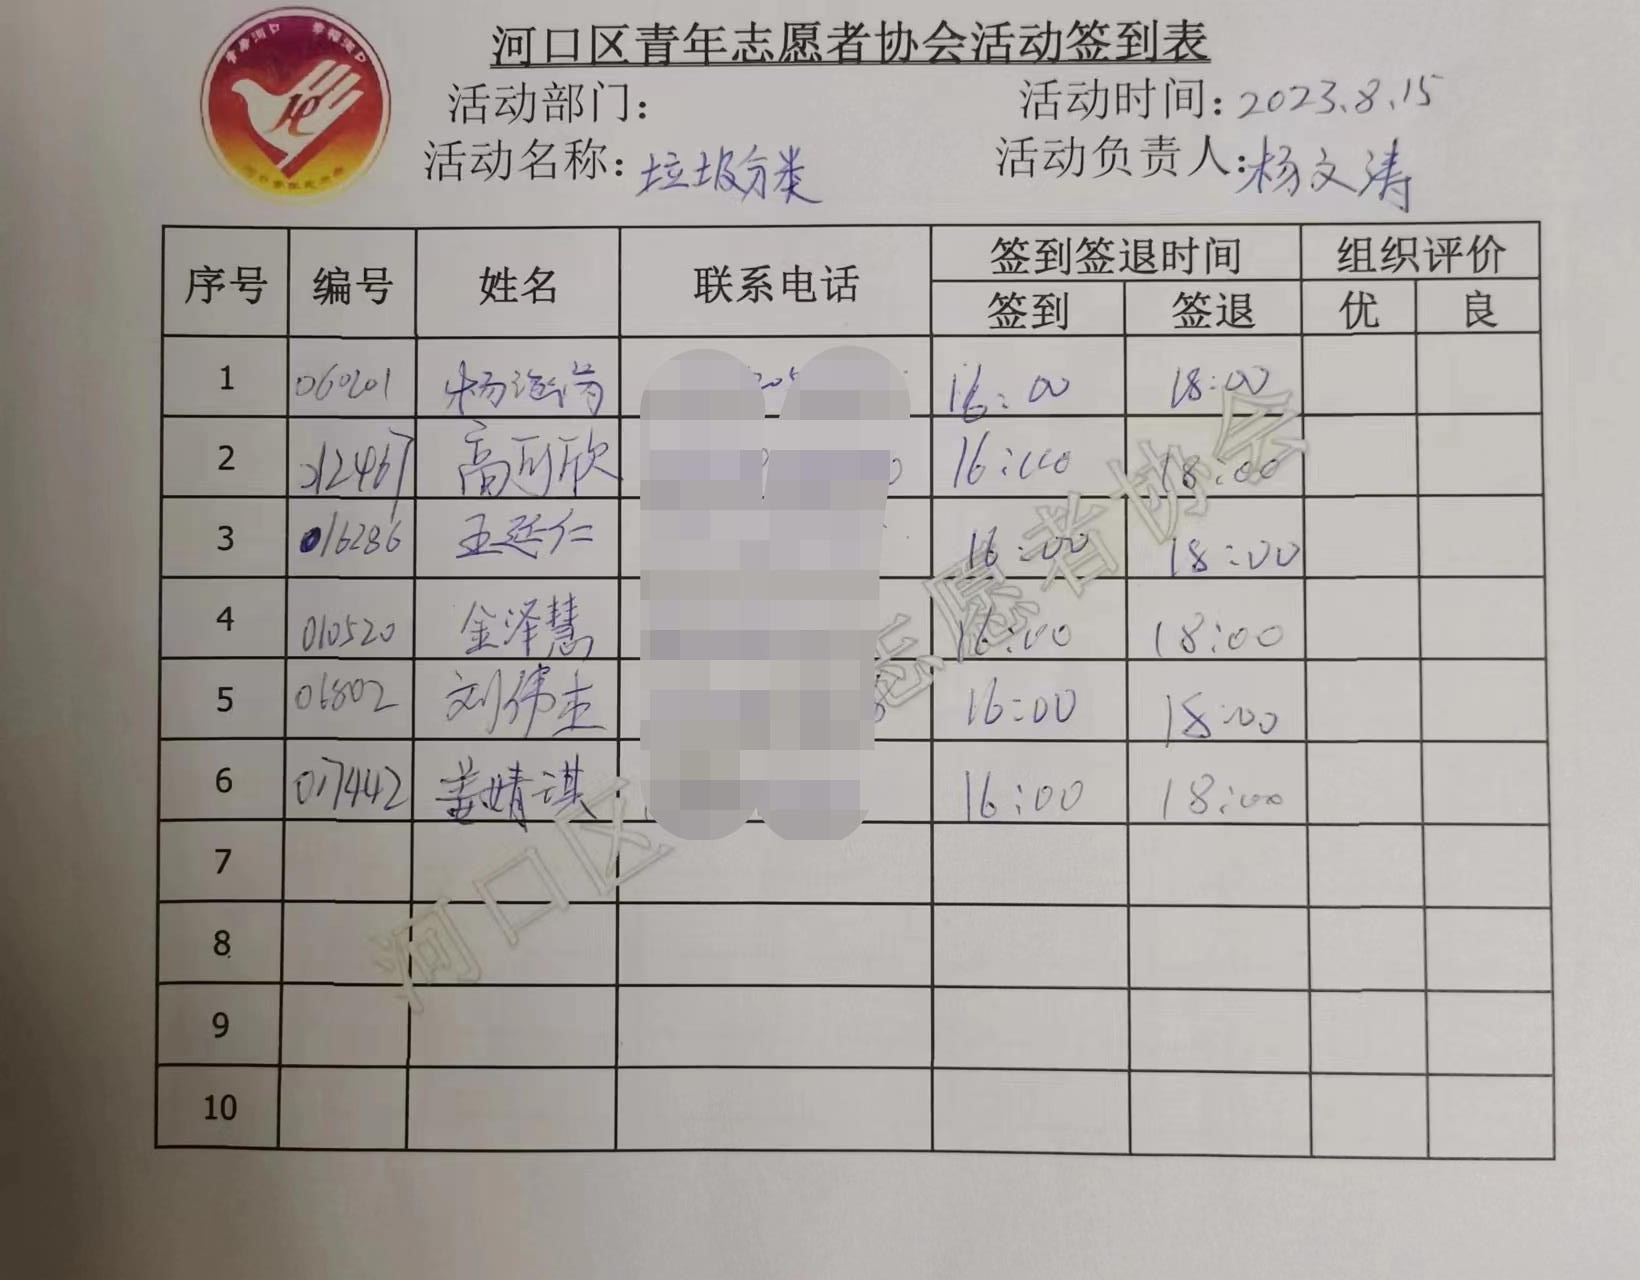 河口区青年志愿者协会活动签到表
活动部门：
活动时间：2023.8.15
活动名称：垃圾分类
活动负责人：杨文涛
序号 编号 姓名 联系电话 签到签退时间 组织评价
签到 签退 优 良
1 060201 杨 16:00 18:00
2 012467 高可欣 16:00 18:00
3 016286 王延仁 16:00 18:00
4 010520 金泽慧 16:00 18:00
5 06802 刘伟杰 16:00 18:00
6 017442 姜婧 16:00 18:00
7
8
9
10
河口区 志愿者协会